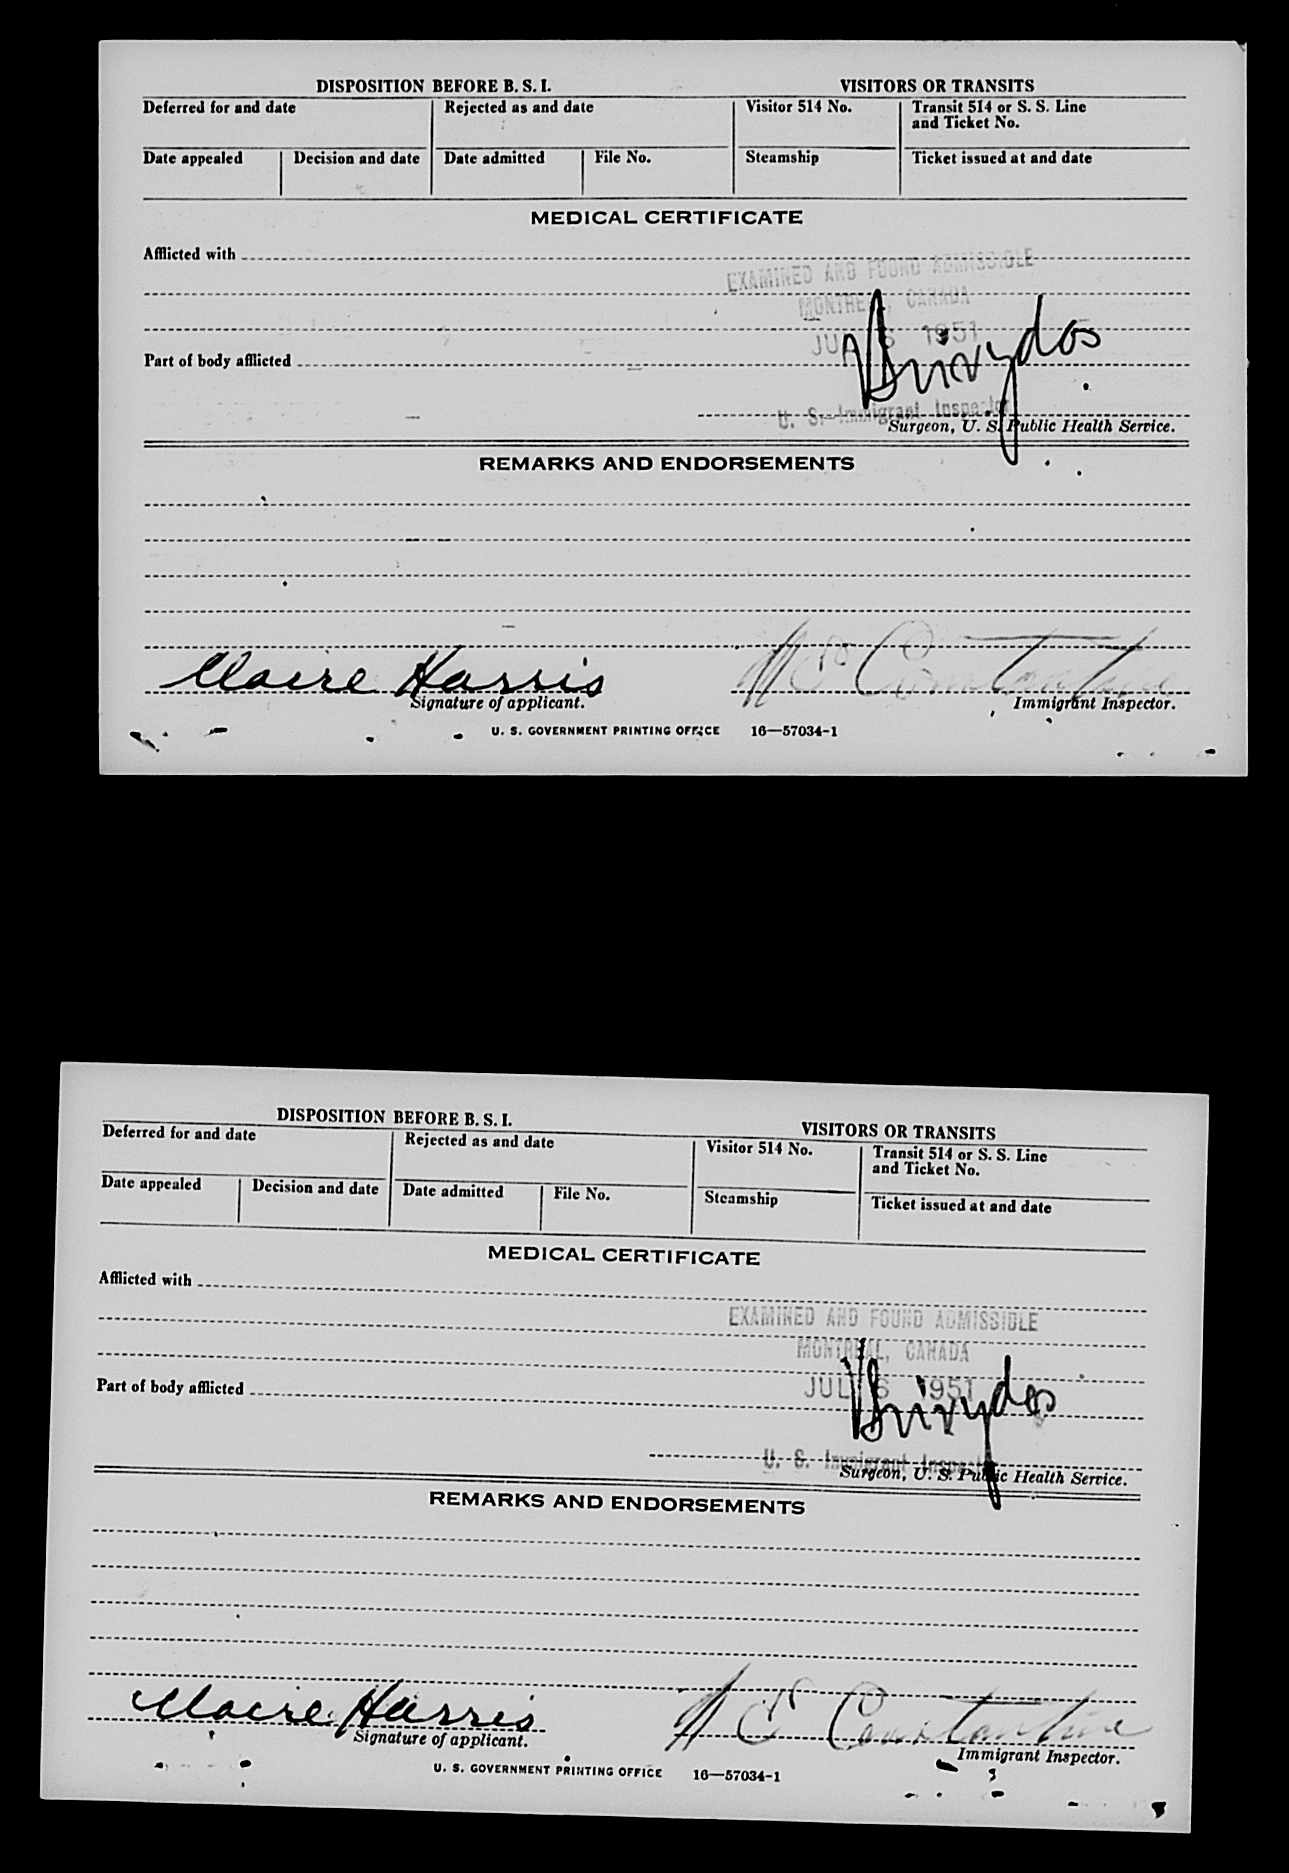 DISPOSITION BEFORE B. S. I. VISITORS OR TRANSITS
Deferred for and date Rejected as and date Visitor 514 No. Transit 514 or S. S. Line
and Ticket No.
Date appealed Decision and date Date admitted File No. Steamship Ticket issued at and date
MEDICAL CERTIFICATE
Afflicted with
EXAMINED AND FOUND ADMISSIBLE
MONTREAL, CANADA
1951
Part of body afflicted
U. S. Immigrant Inspector
Surgeon, U. S. Public Health Service.
REMARKS AND ENDORSEMENTS
Claire Harris Constantine
Signature of applicant. Immigrant Inspector.
U. S. GOVERNMENT PRINTING OFFICE 16—57034-1
DISPOSITION BEFORE B. S. I. VISITORS OR TRANSITS
Deferred for and date Rejected as and date Visitor 514 No. Transit 514 or S. S. Line
and Ticket No.
Date appealed Decision and date Date admitted File No. Steamship Ticket issued at and date
MEDICAL CERTIFICATE
Afflicted with
EXAMINED AND FOUND ADMISSIBLE
MONTREAL, CANADA
JUL 6 1951
Part of body afflicted
U. S. Immigrant Inspector
Surgeon, U. S. Public Health Service.
REMARKS AND ENDORSEMENTS
Claire Harris Constantine
Signature of applicant. Immigrant Inspector.
U. S. GOVERNMENT PRINTING OFFICE 16—57034-1